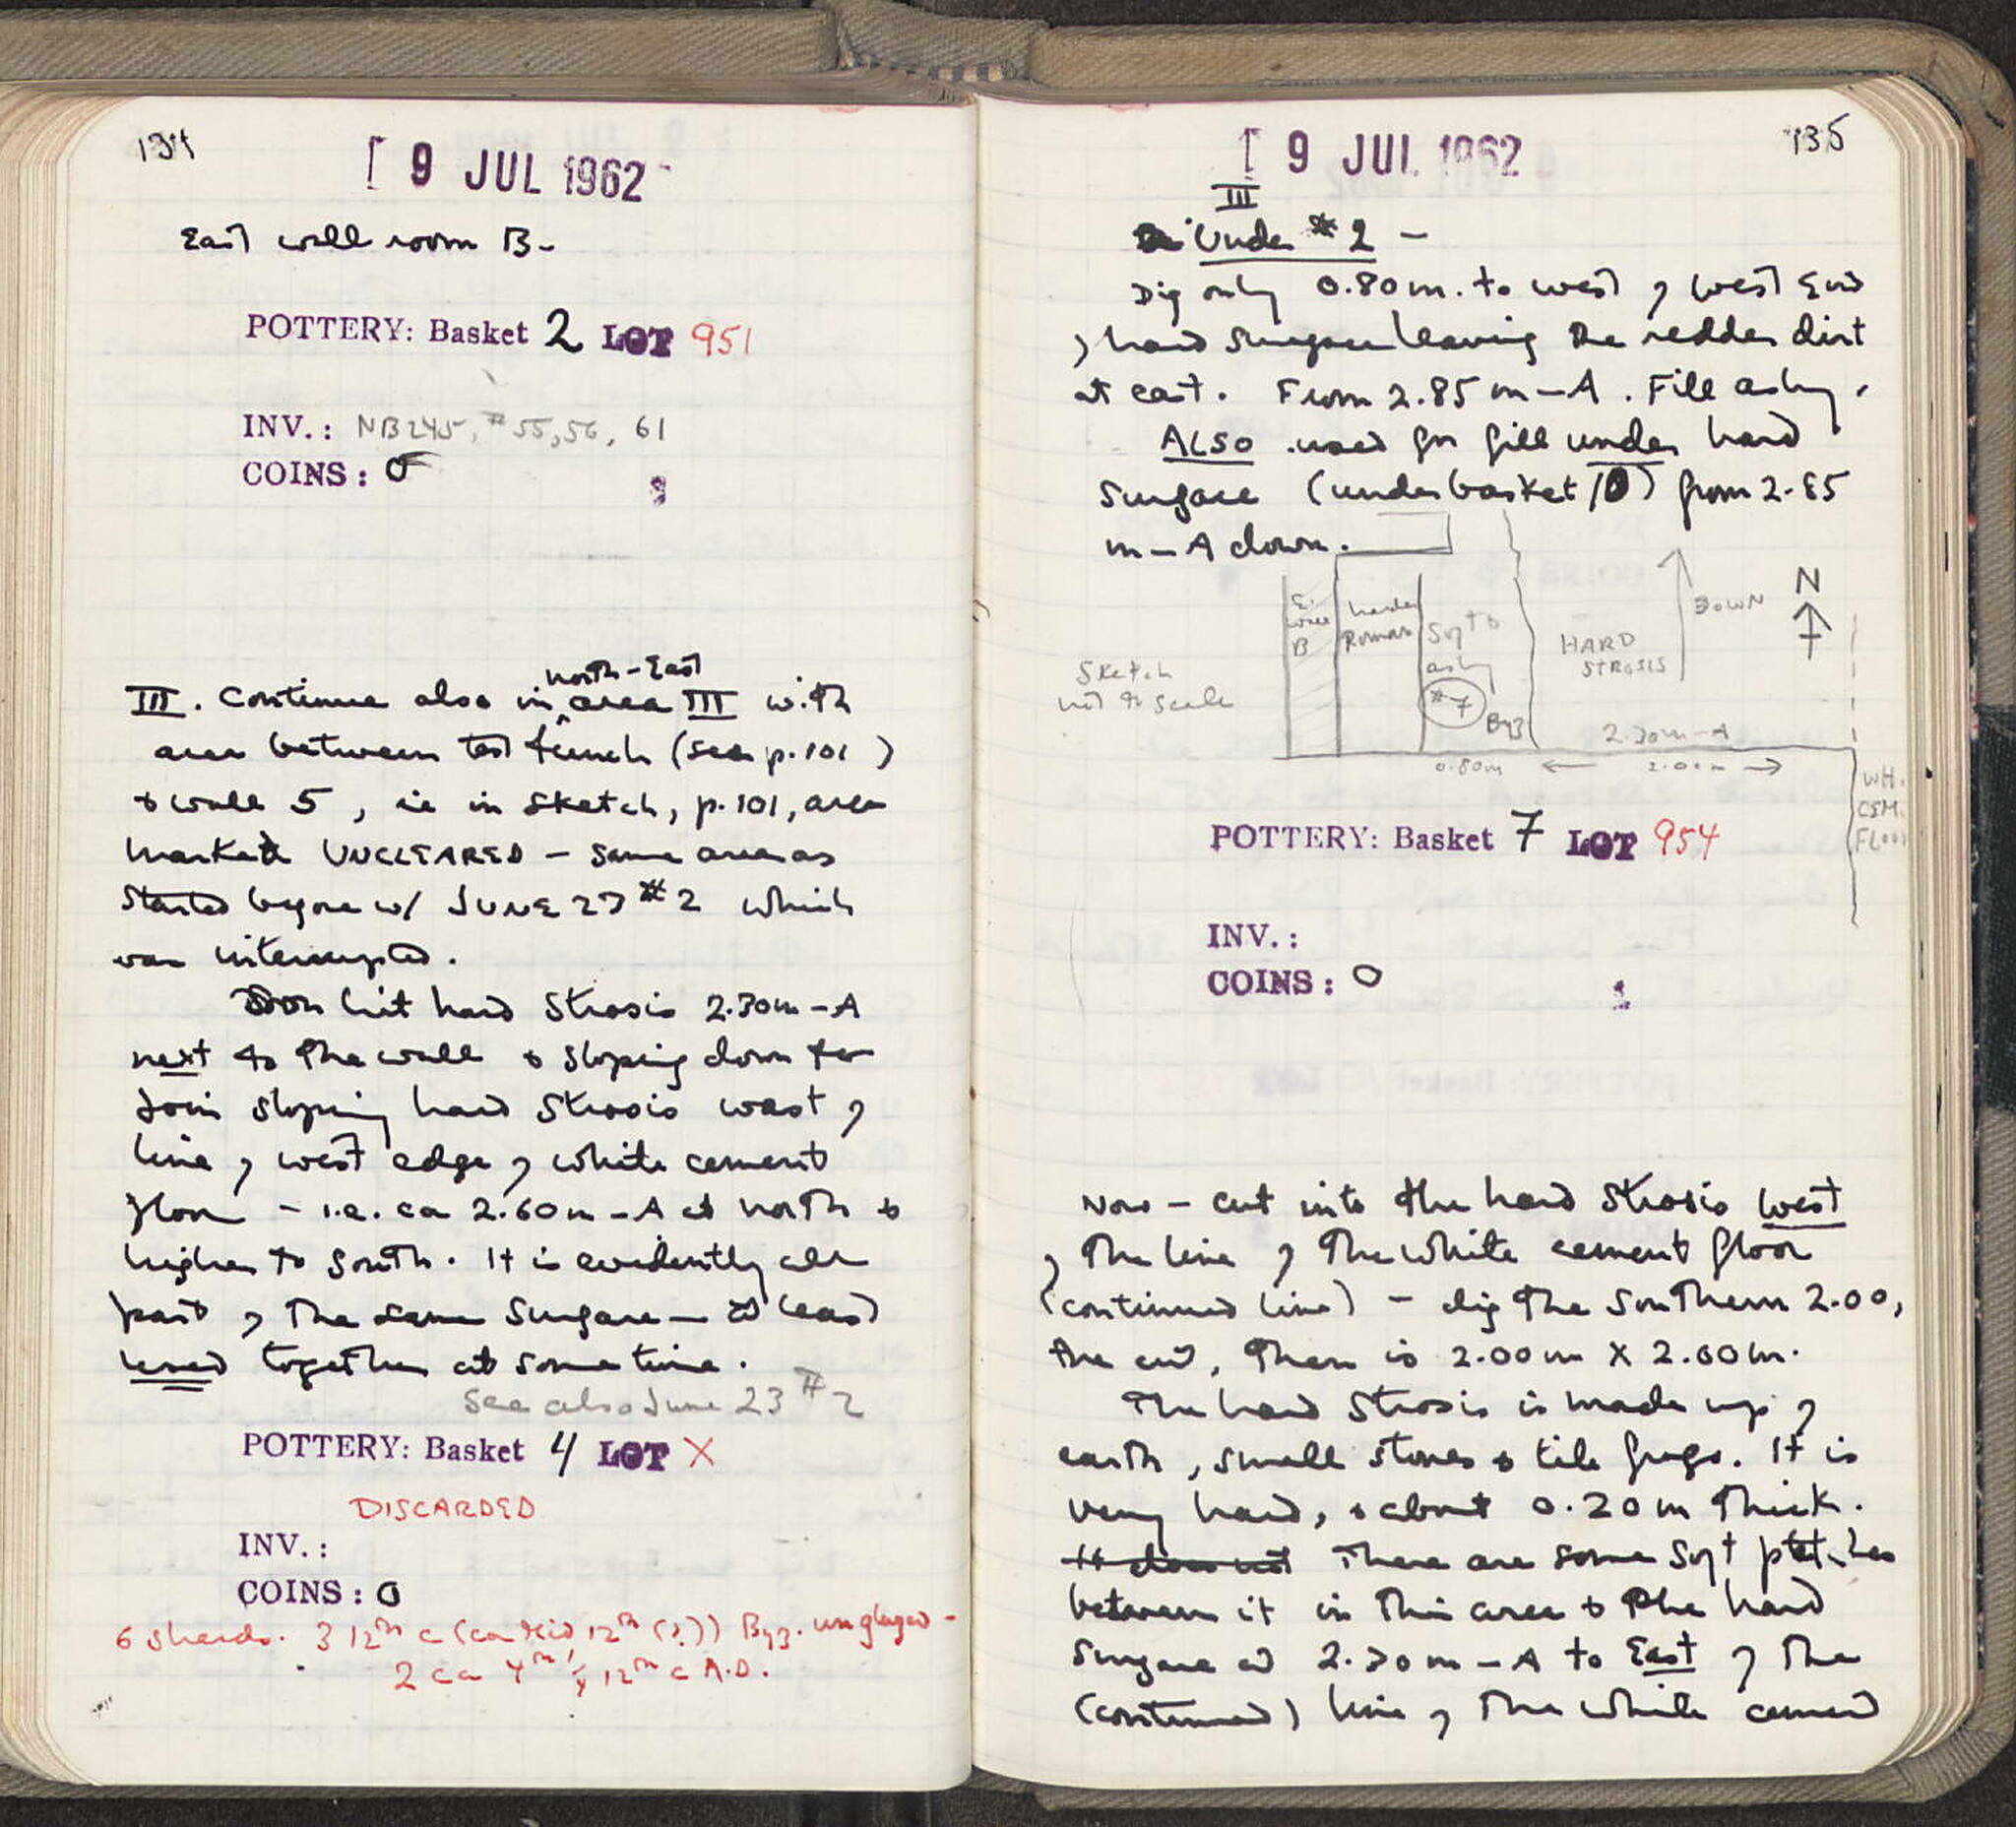 134
9 JUL 1962
East wall room B-
POTTERY: Basket 2 LOT 951
INV.: NB245, #55,56, 61
COINS: 0
north-East
III. Continue also in area III with
area between test trench (see p.101)
& wall 5, ie in sketch, p.101, area
marked UNCLEARED - same area as
started before w/ JUNE 23 #2 which
was interrupted.
Soon hit hard Strosis 2.30m-A
next to the wall & sloping down to
join sloping hard Strosis west of
line of west edge of white cement
floor - i.e. ca 2.60m-A at north &
higher to south. It is evidently all
part of the same surface - at least
used together at some time.
See also June 23 #2
POTTERY: Basket 4 LOT X
DISCARDED
INV.:
COINS: 0
6 sherds. 3 12th c (ca mid 12th (?)) Byz. unglazed -
2 ca 4th, 12th c A.D.
135
9 JUL 1962
III
Under #2 -
Dig only 0.80m. to west of west end
of hard surface leaving the redder dirt
at east. From 2.85m-A. Fill ashy.
ALSO used for fill under hard
surface (under basket 10) from 2.85
m-A down.
E. wall B
harder Roman
Soft & ashy
#7
Byz
HARD STROSIS
DOWN
N
Sketch
not to scale
2.30m-A
0.80m
2.00m
WH. CEM. FLOOR
POTTERY: Basket 7 LOT 954
INV.:
COINS: 0
Now - cut into the hard Strosis west
of the line of the white cement floor
(continued line) - dig the southern 2.00,
the cut, then is 2.00m X 2.60m.
The hard Strosis is made up of
earth, small stones & tile frags. It is
very hard, & about 0.20m thick.
It does not There are some soft patches
between it in this area & the hard
surface at 2.30m-A to East of the
(continued) line of the white cement